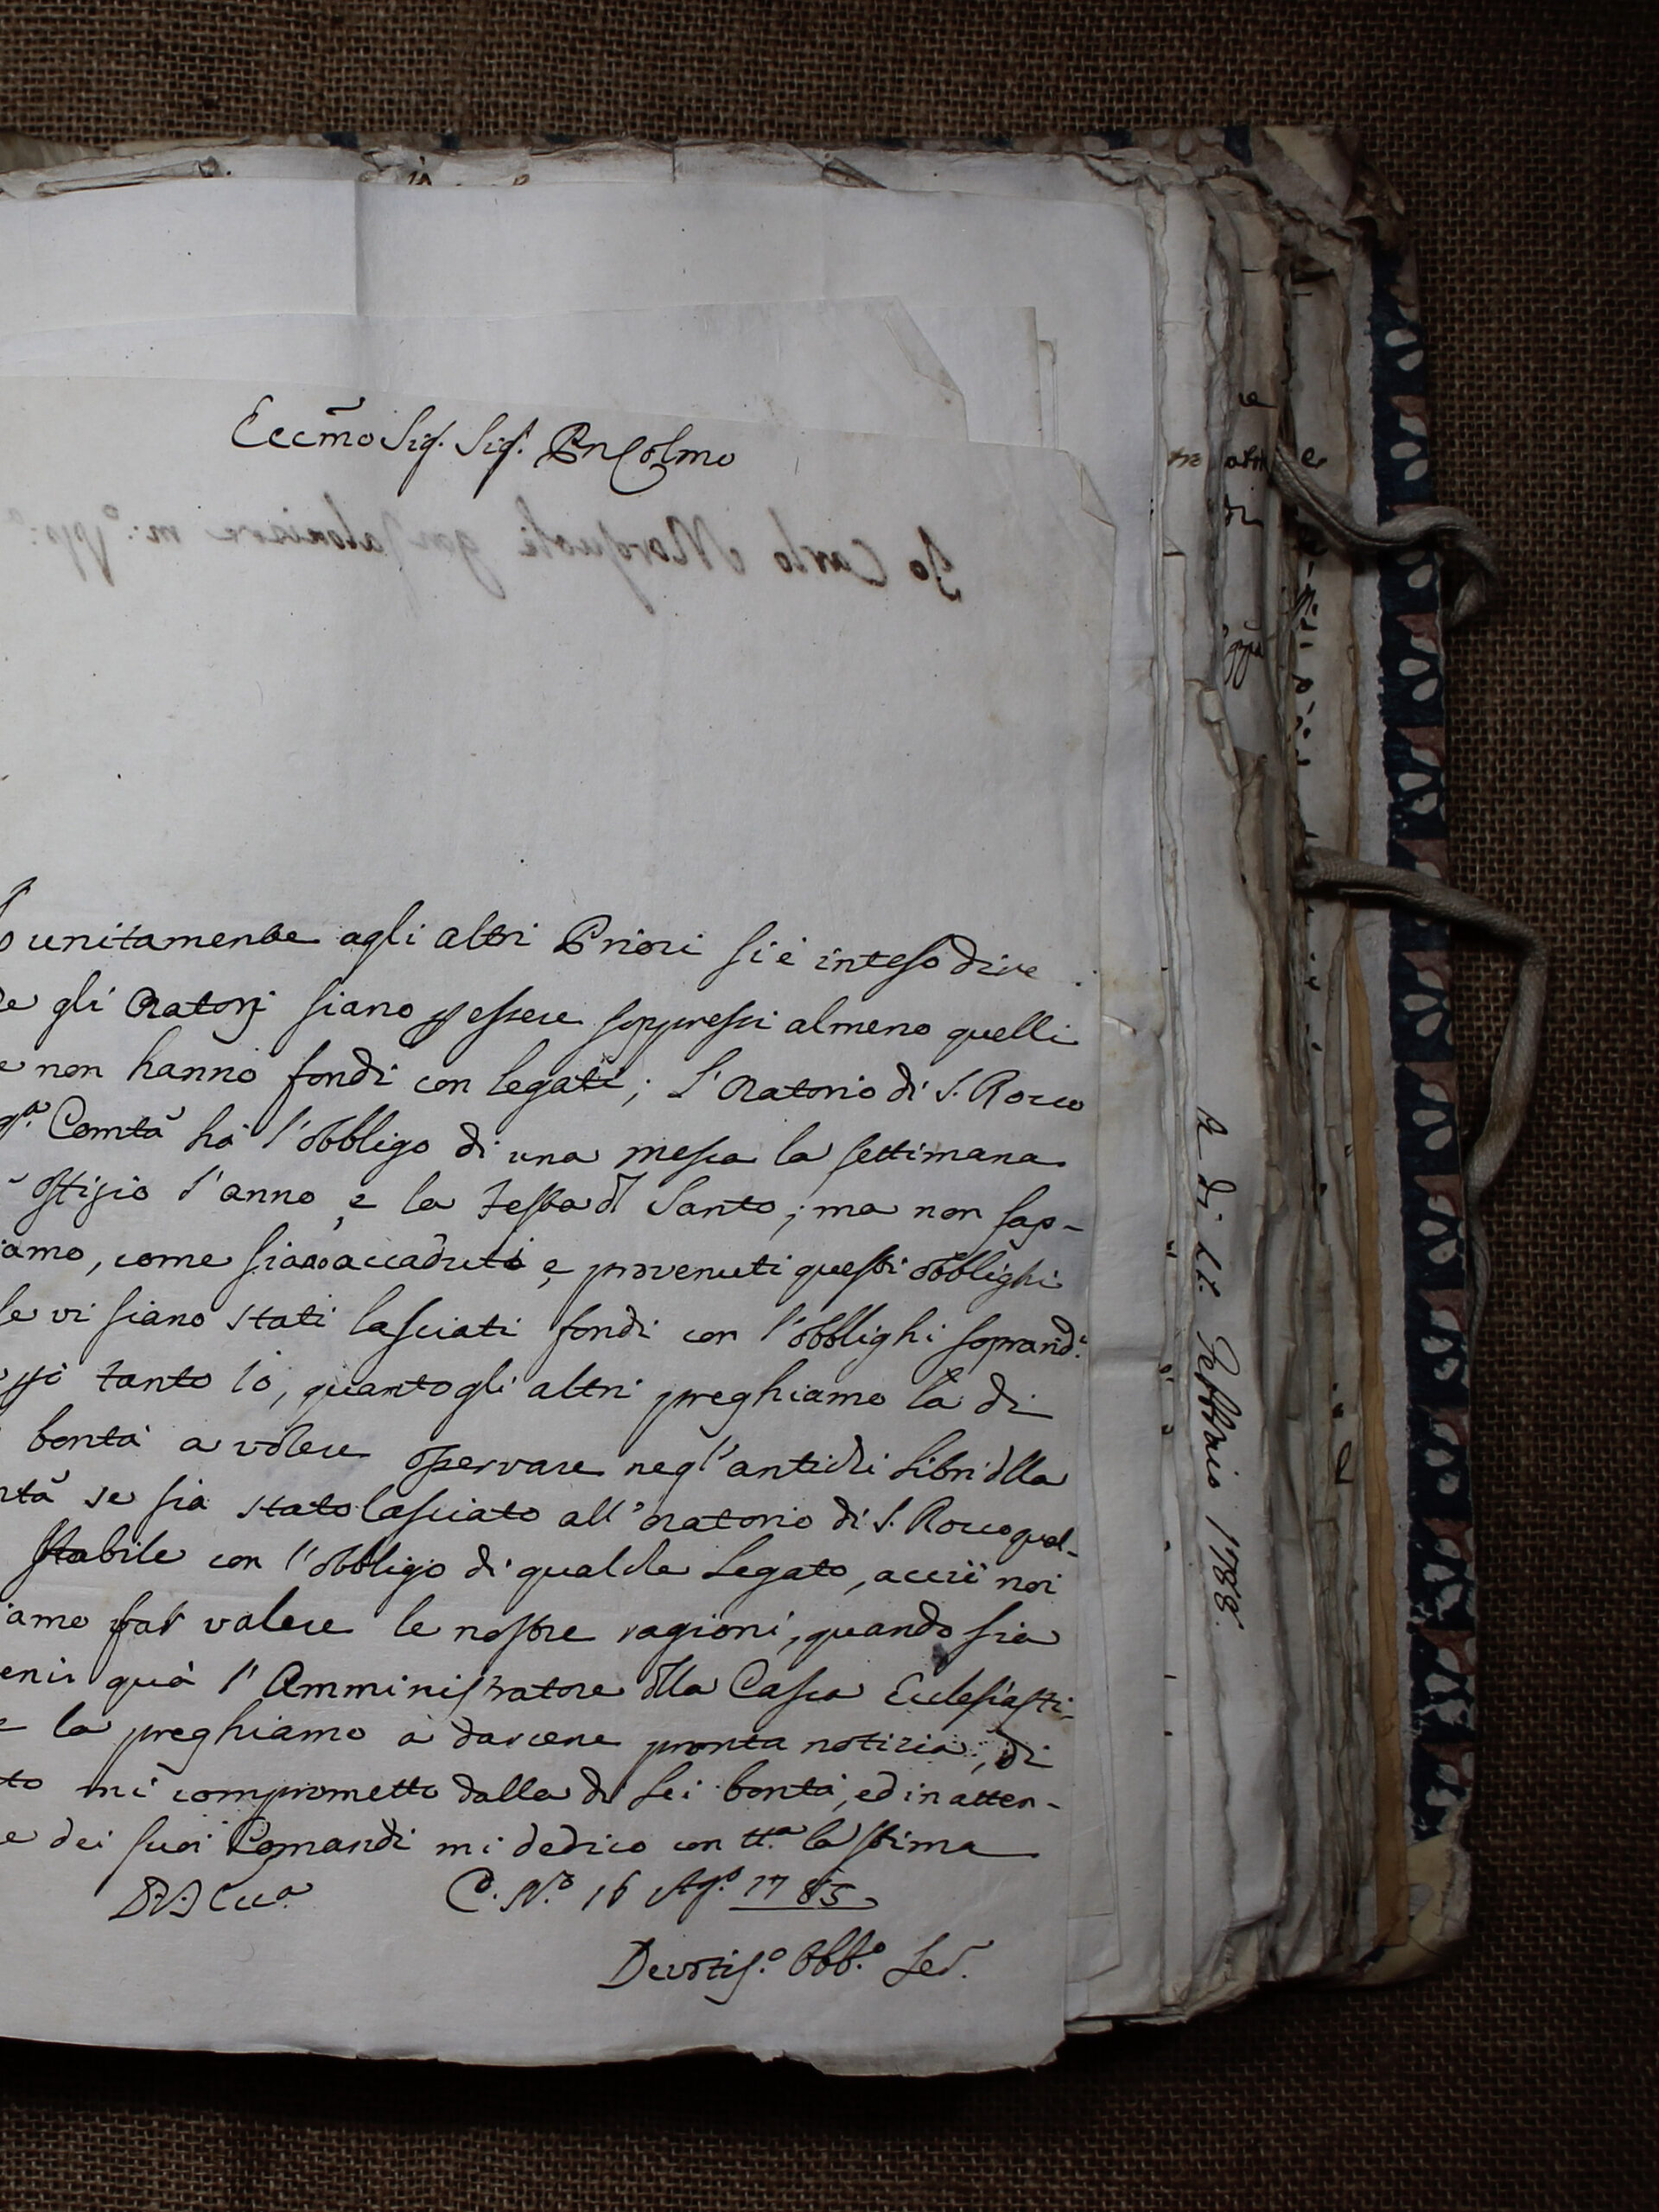 Eccmo Sig. Sig.
Io Carlo
unitamente agli altri Priori si è inteso dire
gli Oratorj siano p essere soppressi almeno quelli
non hanno fondi con legati; l'Oratorio di S. Rocco
Comtà hà l'obbligo di una messa la settimana
l'anno, e la Festa dl Santo; ma non sap-
iamo, come siano accaduti e provenuti questi obblighi
se vi siano stati lasciati fondi con l'obblighi soprad.i
tanto io, quanto gli altri preghiamo la di
bontà a volere osservare negl'antichi Libri dlla
se sia stato lasciato all'oratorio di S. Rocco qual-
stabile con l'obbligo di qualche Legato, acciò noi
iamo far valere le nostre ragioni, quando sia
enir quà l'Amministratore dlla Cassa Ecclesiasti-
la preghiamo à darcene pronta notizia; di
to mi comprometto dalla di Lei bontà, ed in atten-
e dei suoi Comandi mi dedico con tt.a la stima
16 Ag.o 1785
Devotis.o Obb.o Ser.
A di 21. Febbraio 1788.